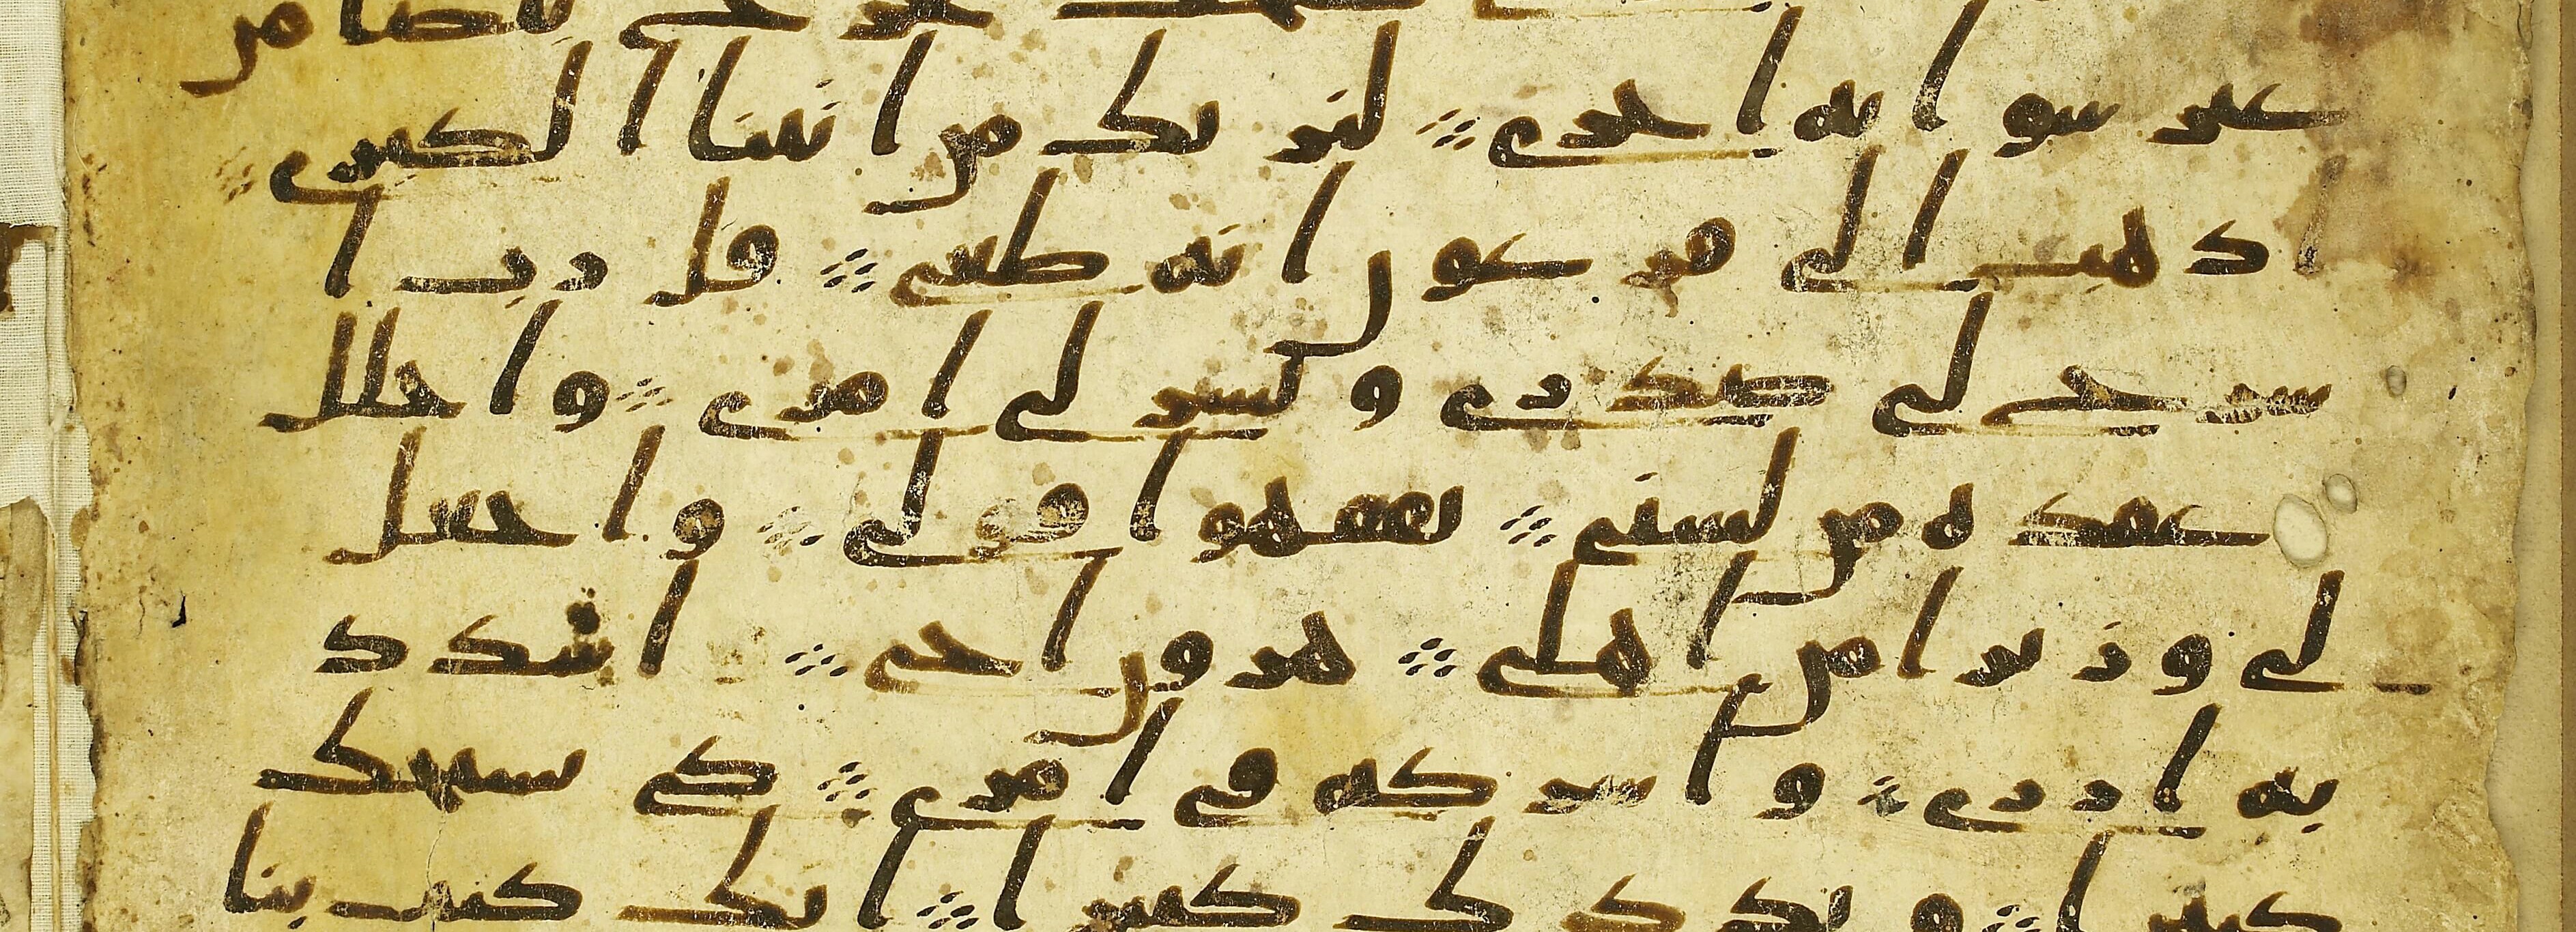 تخرج بيضا من
غير سو اية اخرى ؞ لنريك من ايتنا الكبرى ؞
اذهب الى فرعون انه طغى ؞ قل رب ا
شرح لى صدرى ويسر لى امرى ؞ واحلل
عقدة من لسنى ؞ يفقهوا قولى ؞ واجعل
لى وزيرا من اهلى ؞ هرون اخى ؞ اشدد
به ازرى ؞ واشركه فى امرى ؞ كى نسبحك
كثيرا ؞ ونذكرك كثيرا ؞ انك كنت بنا